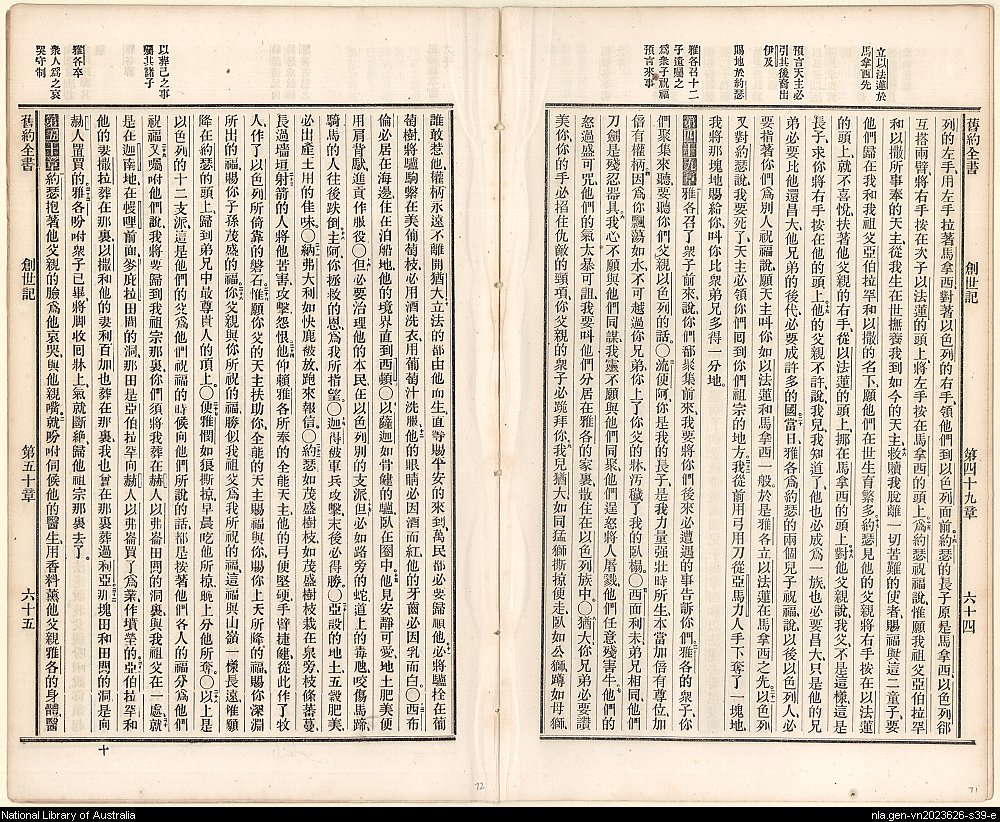 舊約全書 創世記 第四十九章 六十四
立以法蓮於
馬拿西先
預言天主必
引其後裔出
伊及
賜地於約瑟
雅各召十二
子遺囑之
爲衆子祝福
預言來事
列的左手、用左手拉著馬拿西、對著以色列的右手、領他們到以色列面前、約瑟的長子原是馬拿西、以色列卻
互搭兩臂、將右手按在次子以法蓮的頭上、將左手按在馬拿西的頭上、爲約瑟祝福說、惟願我祖父亞伯拉罕
和以撒所事奉的天主、從我生在世撫養我到如今的天主、救贖我脫離一切苦難的使者、賜福與這二童子、要
他們歸在我和我祖父亞伯拉罕和以撒的名下、願他們在世生育繁多、約瑟見他的父親將右手按在以法蓮
的頭上、就不喜悅、扶著他父親的右手、從以法蓮的頭上、挪在馬拿西的頭上、對他父親說、我父不是這樣、這是
長子、求你將右手按在他的頭上、他的父親不許、說、我兒我知道了、他也必成爲一族、也必要昌大、只是他的兄
弟必要比他還昌大、他兄弟的後代、必要成許多的國、當日雅各爲約瑟的兩個兒子祝福、說、以後以色列人必
要指著你們爲別人祝福、說、願天主叫你如以法蓮和馬拿西一般、於是雅各立以法蓮在馬拿西之先、以色列
又對約瑟說、我要死了、天主必領你們回到你們祖宗的地方、我從前用弓用刀從亞馬力人手下奪了一塊地、
我將那塊地賜給你、叫你比衆弟兄多得一分地。
第四十九章 雅各召了衆子前來、說、你們都聚集前來、我要將你們後來必遭遇的事告訴你們、雅各的衆子、你
們聚集來聽、要聽你們父親以色列的話、〇流便阿、你是我的長子、是我力量強壯時所生、本當加倍有尊位、加
倍有權柄、因爲你飄蕩如水、不可越過你兄弟、你上了你父的牀、汚穢了我的臥榻、〇西面利未弟兄相同、他們
刀劍是殘忍器具、我心不願與他們同謀、我靈不願與他們同聚、他們逞怒將人屠戮、他們任意殘害牛、他們的
怒過盛可咒、他們的氣太暴可詛、我要叫他們分居在雅各的家裏、散住在以色列族中、〇猶大、你兄弟必要讚
美你、你的手必掐住仇敵的頸項、你父親的衆子必跪拜你、我兒猶大、如同猛獅、撕掠便走、臥如公獅、蹲如母獅、
舊約全書 創世記 第五十章 六十五
以葬己之事
囑其諸子
雅各卒
衆人爲之哀
哭守制
誰敢惹他、權柄永遠不離開猶大、立法的都由他而生、直等賜平安的來到、萬民都必要歸順他、必將驢栓在葡
萄樹、將驢駒繫在美葡萄枝、必用酒洗衣、用葡萄汁洗服、他的眼睛必因酒而紅、他的牙齒必因乳而白、〇西布
倫必居在海邊、住在泊船地、他的境界直到西頓、〇以薩迦如骨健的驢、臥在圈中、他見安靜可愛、地土肥美、便
用肩背馱、進貢作服役、〇但必要治理他的本民、在以色列別的支派、但必如路旁的蛇、道上的毒虺、咬傷馬蹄、
騎馬的人往後跌倒、主阿、你拯救的恩、爲我所指望、〇迦得被軍兵攻擊、末後必得勝、〇亞設的地土、五穀肥美、
必出產王用的佳味、〇納弗大利如快鹿被放、跑來報信、〇約瑟如茂盛樹枝、如茂盛樹枝栽在泉旁、枝條蕃蔓、
長過墻垣、射箭的人將他苦害、攻擊怨恨、他仰賴雅各所奉的全能天主、他的弓便堅硬、手臂捷健、從此作了牧
人、作了以色列所倚靠的磐石、惟願你父的天主扶助你、全能的天主賜福與你、賜你上天所降的福、賜你深淵
所出的福、賜你子孫茂盛的福、你父親與你所祝的福、勝似我祖父爲我所祝的福、這福與山嶺一樣長遠、惟願
降在約瑟的頭上、歸到弟兄中最尊貴人的頂上、〇便雅憫如狼撕掠、早晨吃他所掠、晚上分他所奪、〇以上是
以色列的十二支派、這是他們的父爲他們祝福的時候、向他們所說的話、都是按著他們各人的福分、爲他們
祝福、又囑咐他們說、我將要歸到我祖宗那裏、你們須將我葬在赫人以弗崙田間的洞裏、與我祖父在一處、就
是在迦南地、在幔哩前面麥庇拉田間的洞、那田是亞伯拉罕向赫人以弗崙買了爲業作墳塋的、亞伯拉罕和
他的妻撒拉葬在那裏、以撒和他的妻利百加也葬在那裏、我也曾在那裏葬過利亞、那塊田和田間的洞、是向
赫人置買的、雅各吩咐衆子已畢、將脚收回牀上、氣就斷絕、歸他祖宗那裏去了。
第五十章 約瑟抱著他父親的臉、爲他哀哭、與他親嘴、就吩咐伺候他的醫生、用香料薰他父親雅各的身體、醫
十
72
71
National Library of Australia
nla.gen-vn2023626-s39-e